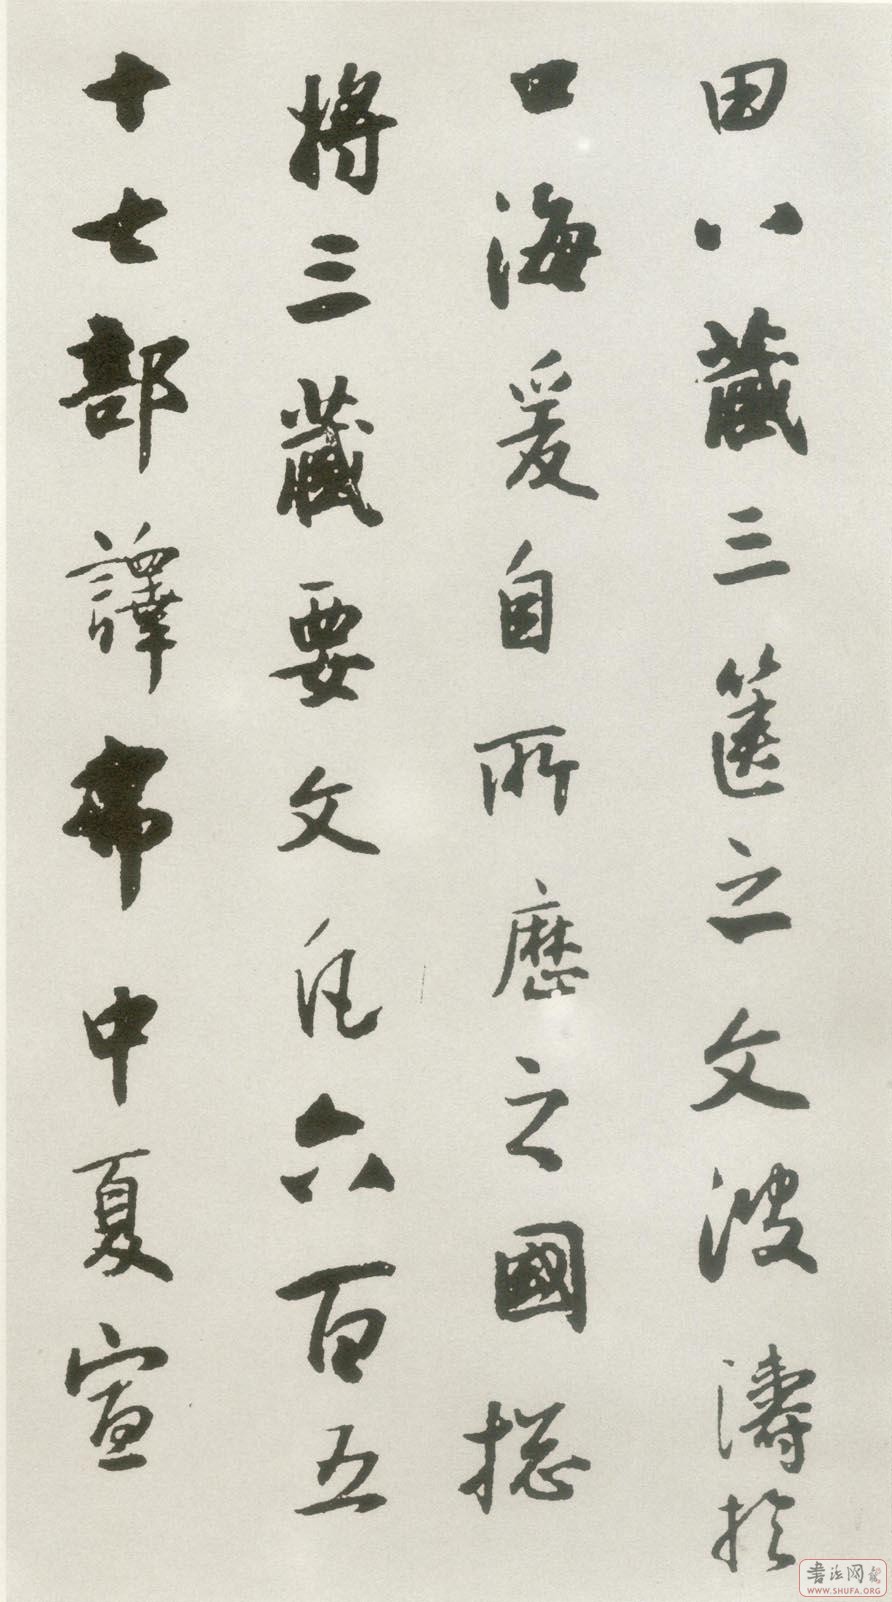 田八藏三篋之文波濤於
口海爰自所歷之國捴
將三藏要文凡六百五
十七部譯布中夏宣
書法网
WWW.SHUFA.ORG